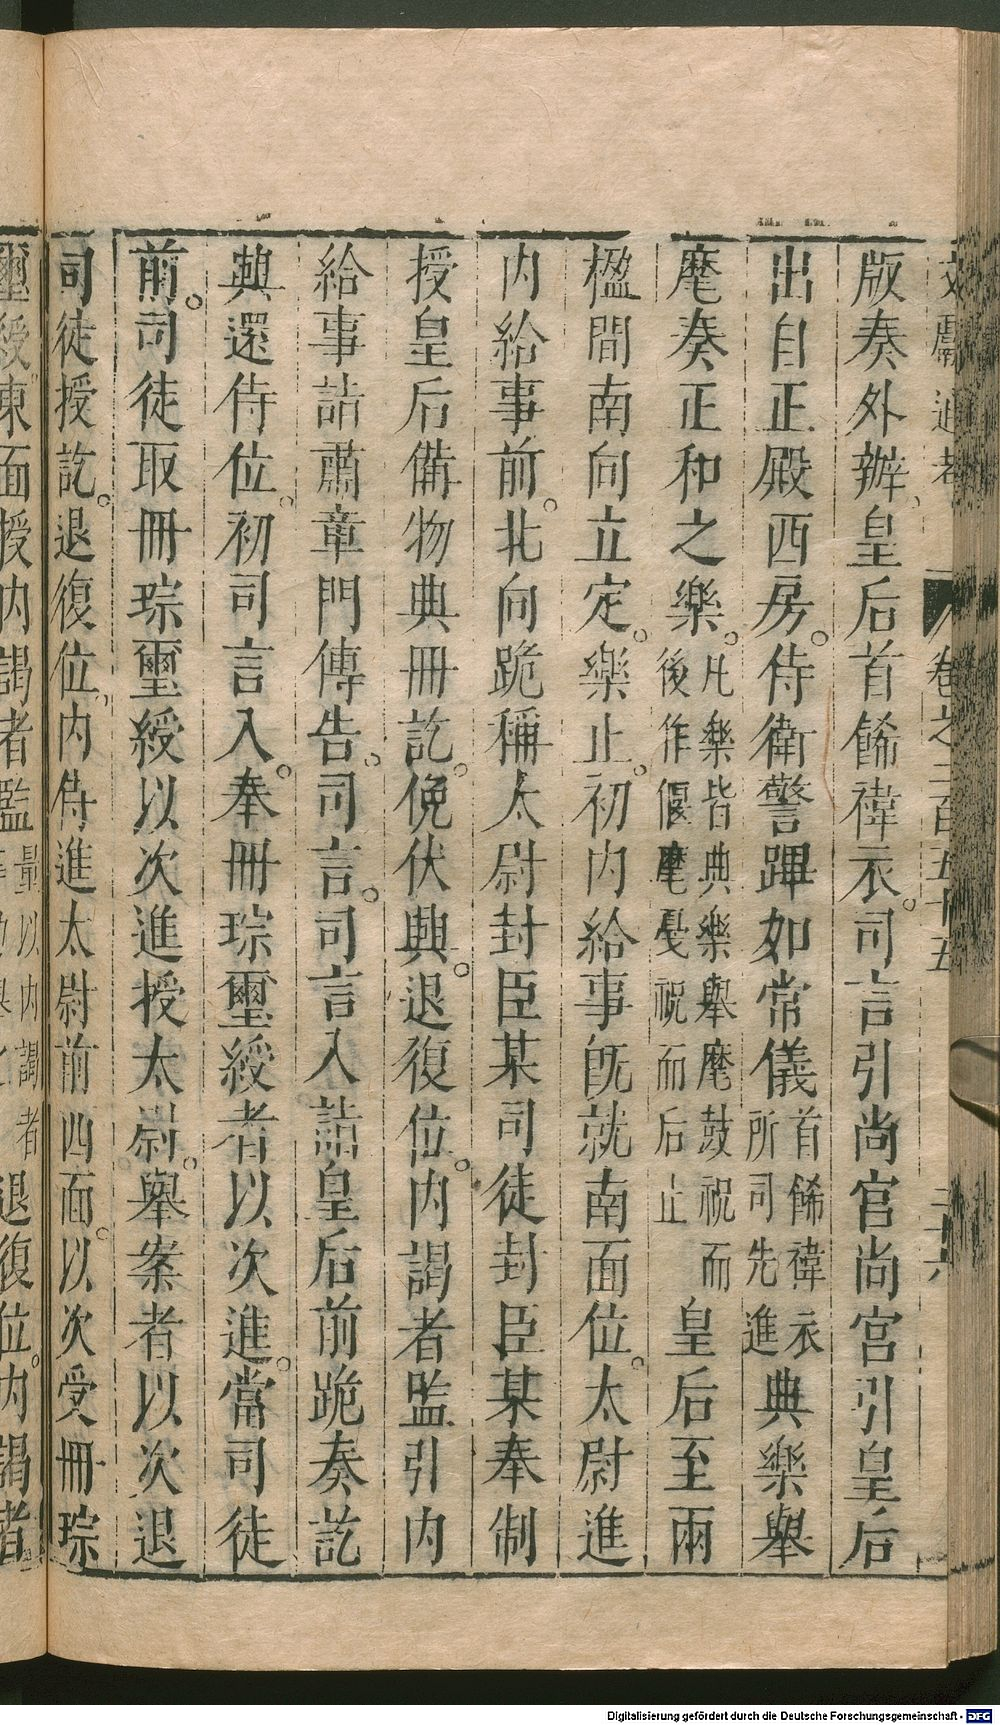 版奏外辦皇后首餙褘衣司言引尚宮尚宮引皇后
出自正殿西房侍衛警蹕如常儀首餙褘衣所司先進典樂舉
麾奏正和之樂凡樂皆典樂舉麾鼓柷而後作偃麾戛柷而后止皇后至兩
楹間南向立定樂止初内給事既就南面位太尉進
内給事前北向跪稱太尉封臣某司徒封臣某奉制
授皇后備物典冊訖俛伏興退復位内謁者監引内
給事詣肅章門傳告司言司言入詣皇后前跪奏訖
興還侍位初司言入奉冊琮璽綬者以次進當司徒
前司徒取冊琮璽綬以次進授太尉舉案者以次退
司徒授訖退復位内侍進太尉前西面以次受冊琮
璽綬東面授内謁者監
退復位内謁者
Digitalisierung gefördert durch die Deutsche Forschungsgemeinschaft - DFG